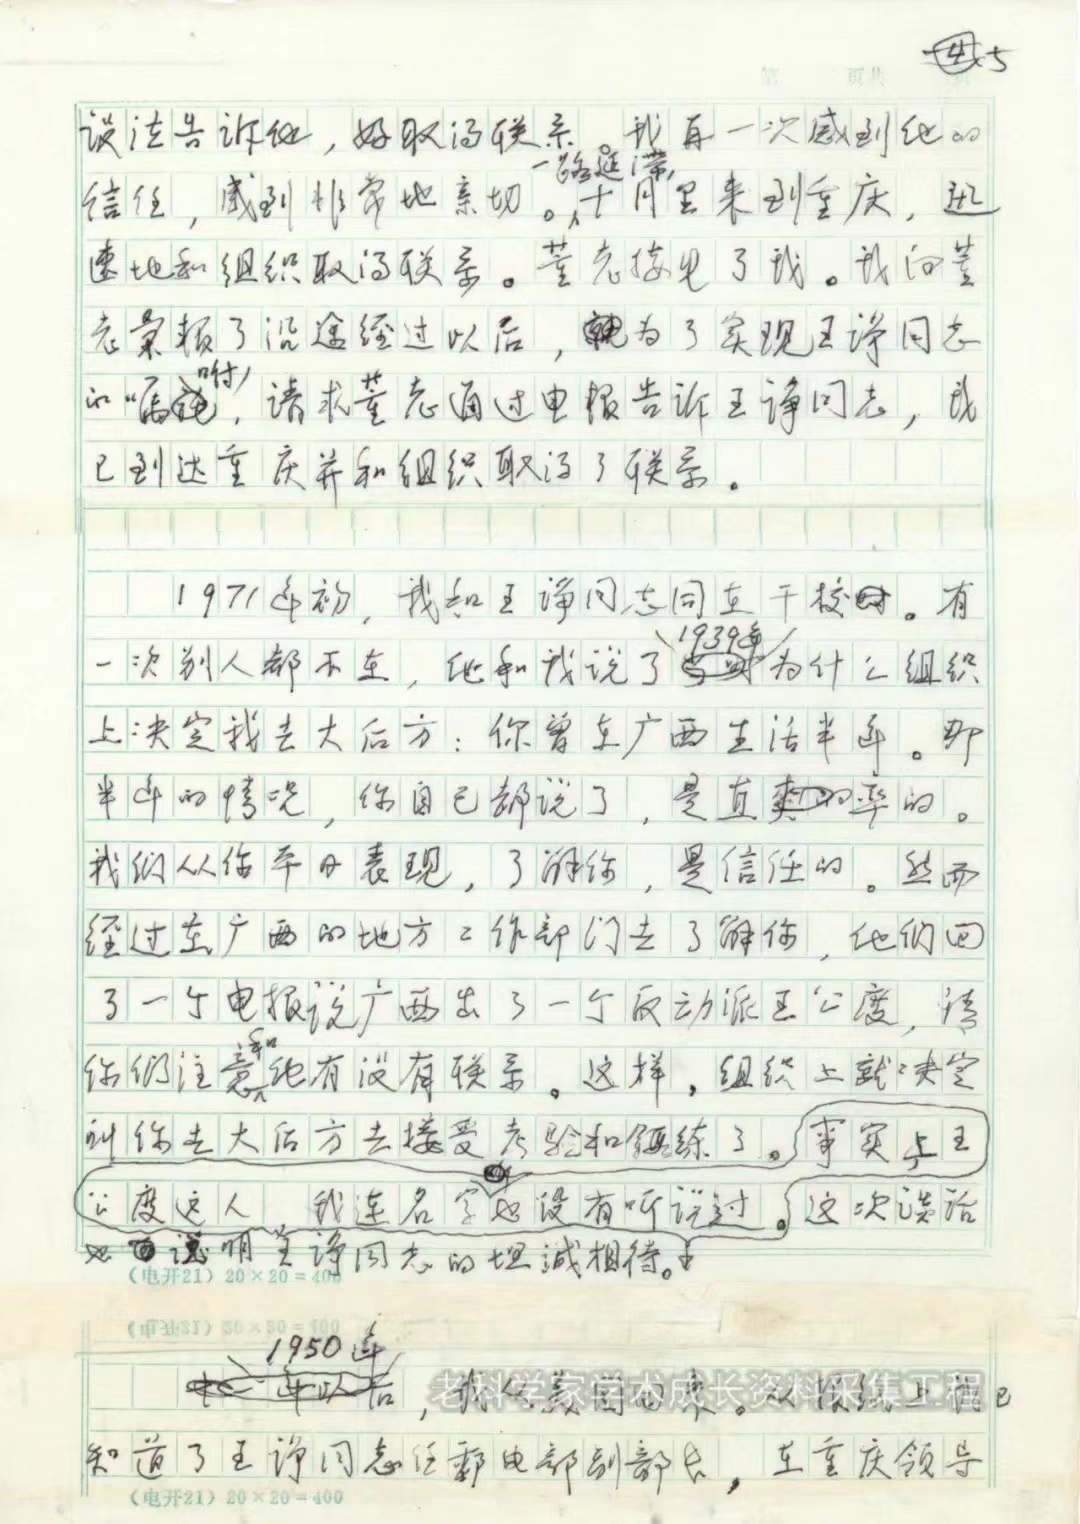 5
设法告诉他，好取得联系。我再一次感到他的
一路延滞，
信任，感到非常地亲切。十月里来到重庆，迅
速地和组织取得联系。董老接见了我。我向董
老汇报了沿途经过以后，为了实现王诤同志
的嘱咐，请求董老通过电报告诉王诤同志，我
已到达重庆并和组织取得了联系。
1971年初，我和王诤同志同在干校。有
1939年
一次别人都不在，他和我说了为什么组织
上决定我去大后方：你曾在广西生活半年。那
半年的情况，你自己都说了，是直率的。
我们从你平日表现，了解你，是信任的。然而
经过在广西的地方工作部门去了解你，他们回
了一个电报说广西出了一个反动派王公度，请
和
你们注意他有没有联系。这样，组织上就决定
叫你去大后方去接受考验和锻练了。事实上王
公度这人 我连名字也没有听说过。这次谈话
也说明王诤同志的坦诚相待。
（电开21）20×20=400
（电开21）20×20=400
1950年
年以后，我从美国回来。从报纸上我已
老科学家学术成长资料采集工程
知道了王诤同志任邮电部副部长，在重庆领导
（电开21）20×20=400